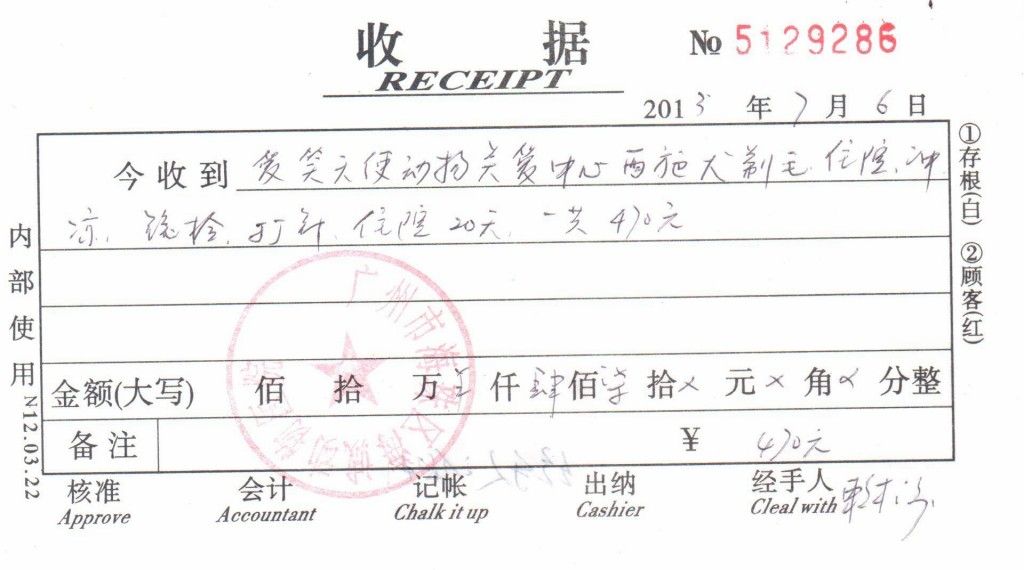 收 据
RECEIPT
№ 5129286
2013 年 7 月 6 日
今收到 爱笑天使动物关爱中心西施犬剃毛、住院、冲
凉、 打针、住院20天,一共470元
金额(大写) 佰 拾 万 仟肆佰柒拾 × 元 × 角 × 分整
备注 ¥ 470元
核准 会计 记帐 出纳 经手人
Approve Accountant Chalk it up Cashier Cleal with
内部使用 N12.03.22
①存根(白) ②顾客(红)
广州市海珠区